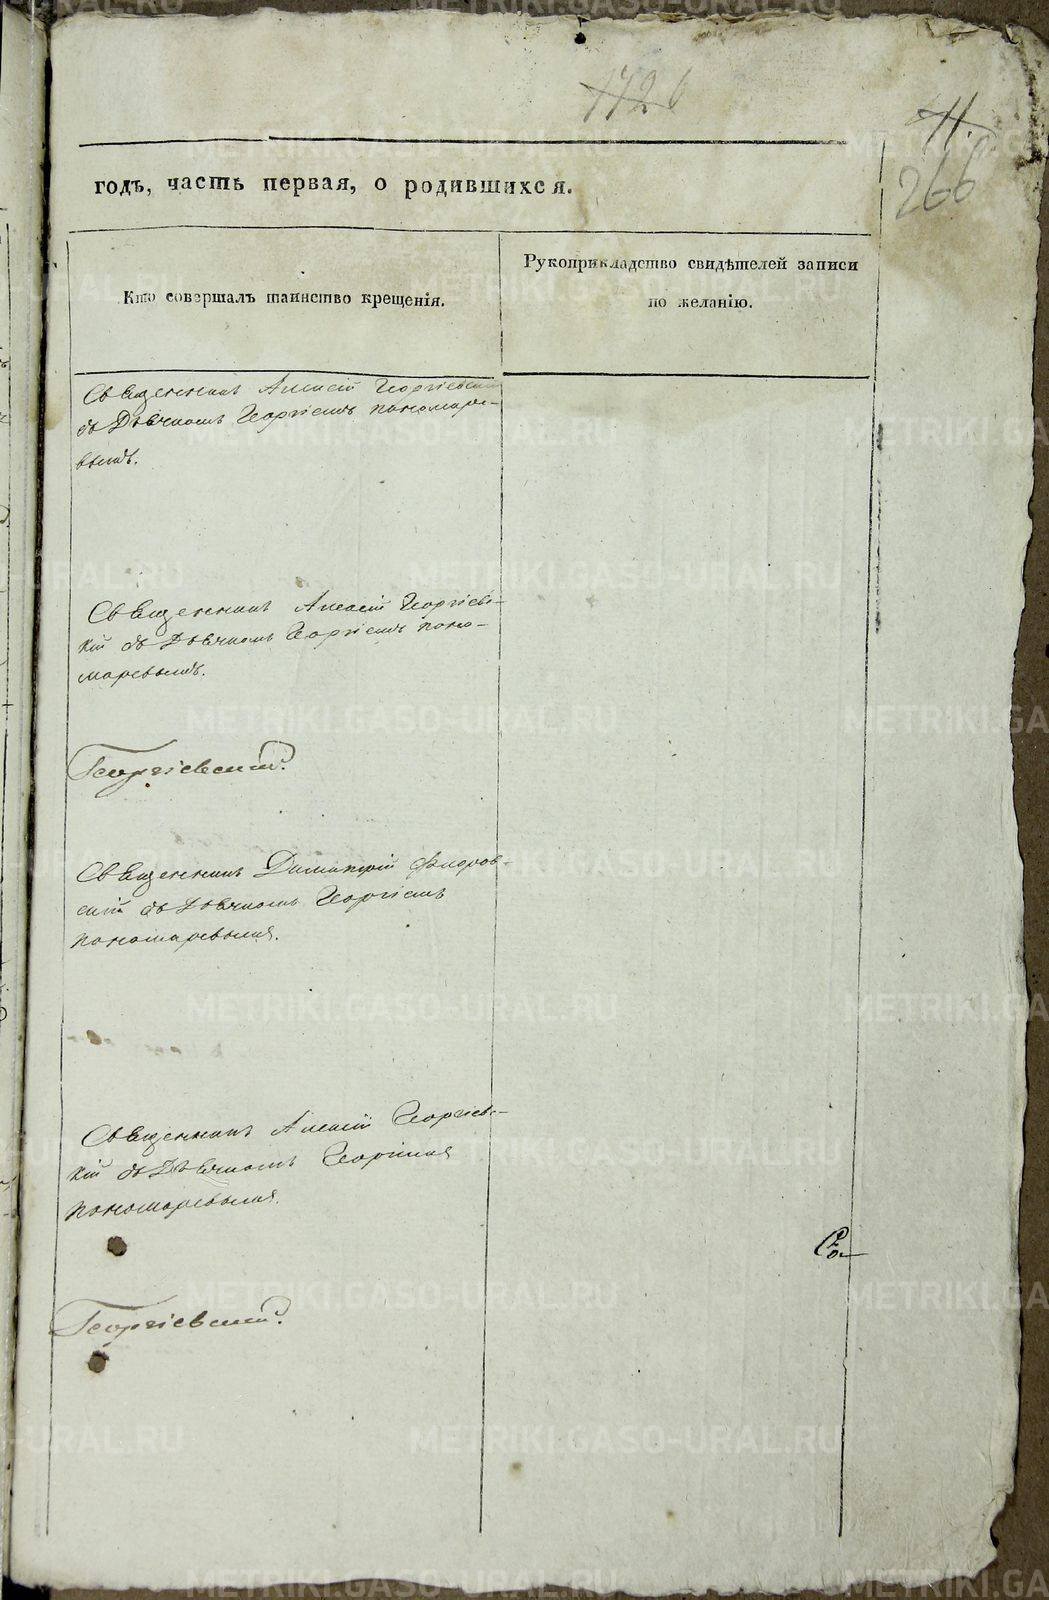 1726
11.
266
годъ, часть первая, о родившихся.
Кто совершалъ таинство крещенія.
Рукоприкладство свидѣтелей записи
по желанію.
Священникъ Алексій Георгіевскій
съ Дьячкомъ Георгіемъ Пономаре-
вымъ.
Священникъ Алексій Георгіевс-
кій съ Дьячкомъ Георгіемъ Поно-
маревымъ.
Георгіевскій.
Священникъ Димитрій Флоров-
скій съ Дьячкомъ Георгіемъ
Пономаревымъ.
Священникъ Алексій Георгіевс-
кій съ Дьячкомъ Георгіемъ
Пономаревымъ.
Георгіевскій.
METRIKI.GASO-URAL.RU